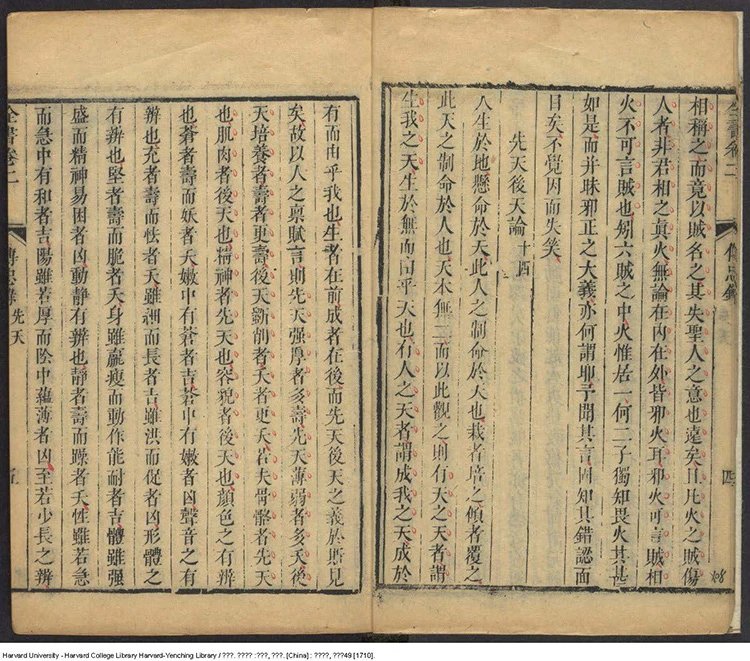 相稱之而竟以賊名之其失聖人之意也遠矣且凡火之賊傷
人者非君相之真火無論在內在外皆邪火耳邪火可言賊相
火不可言賊也矧六賊之中火惟居一何二子獨知畏火其甚
如是而并昧邪正之大義亦何謂耶予聞其言固知其錯認面
目矣不覺因而失笑
先天後天論 十四
人生於地懸命於天此人之制命於天也栽者培之傾者覆之
此天之制命於人也天本無二而以此觀之則有天之天者謂
生我之天生於無而由乎天也有人之天者謂成我之天成於
全書卷二
傳忠錄
四
108
有而由乎我也生者在前成者在後而先天後天之義於斯見
矣故以人之稟賦言則先天强厚者多壽先天薄弱者多夭後
天培養者壽者更壽後天斵削者夭者更夭若夫骨骼者先天
也肌肉者後天也精神者先天也容貌者後天也顏色之有辨
也蒼者壽而妖者夭嫩中有蒼者吉蒼中有嫩者凶聲音之有
辨也充者壽而怯者夭雖細而長者吉雖洪而促者凶形體之
有辨也堅者壽而脆者夭身雖羸瘦而動作能耐者吉體雖强
盛而精神易困者凶動靜有辨也靜者壽而躁者夭性雖若急
而急中有和者吉陽雖若厚而陰中蘊薄者凶至若少長之辨
全書卷二
傳忠錄 先天
五
Harvard University - Harvard College Library Harvard-Yenching Library / ???. ???? :???, ???. [China] : ????, ???49 [1710].